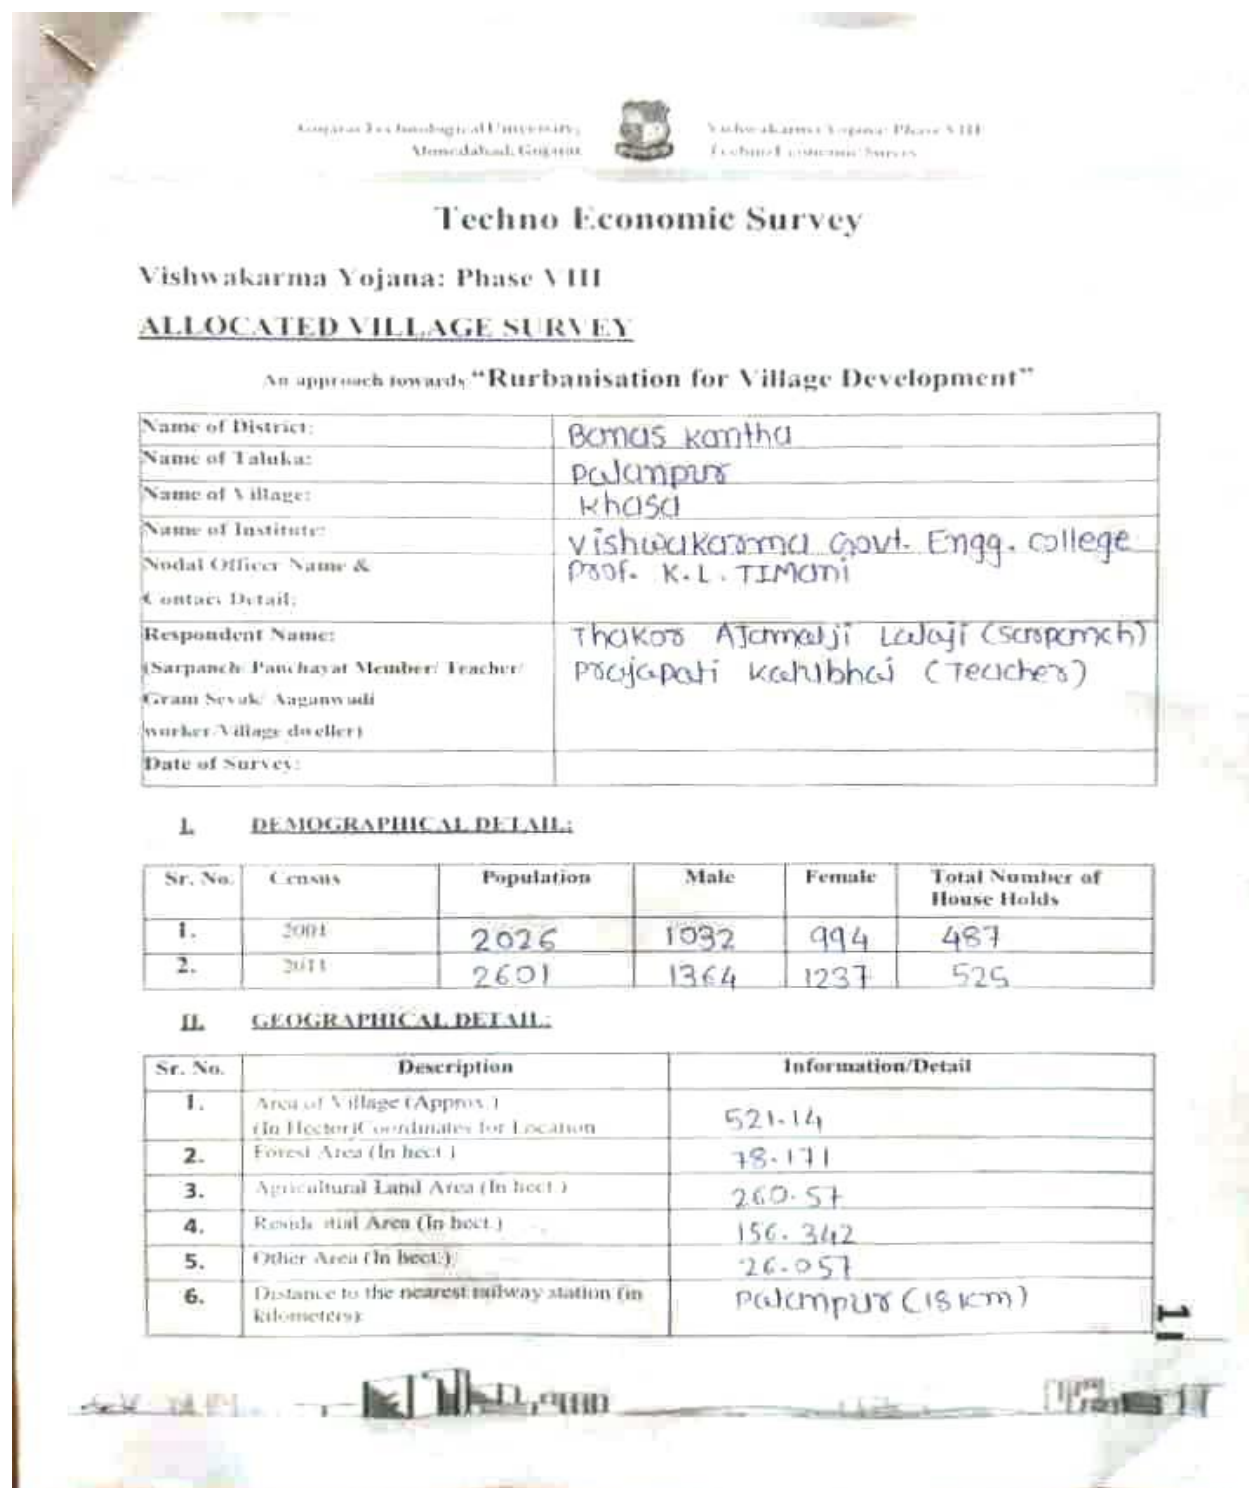 Gujarat Technological University,
Ahmedabad, Gujarat
Vishwakarma Yojana: Phase VIII
Techno Economic Survey
Techno Economic Survey
Vishwakarma Yojana: Phase VIII
ALLOCATED VILLAGE SURVEY
An approach towards “Rurbanisation for Village Development”
Name of District: Banas kantha
Name of Taluka: Palanpur
Name of Village: khasa
Name of Institute: Vishwakarma Govt. Engg. college
Nodal Officer Name & Prof. K.L. TIMani
Contact Detail:
Respondent Name: Thakor Ajamalji Lalaji (Sarpanch)
(Sarpanch/ Panchayat Member/ Teacher/ Prajapati (Teacher)
Gram Sevak/ Aaganwadi
worker/Village dweller)
Date of Survey:
I. DEMOGRAPHICAL DETAIL:
Sr. No. Census Population Male Female Total Number of
House Holds
1. 2001 2026 1032 994 487
2. 2011 2601 1364 1237 525
II. GEOGRAPHICAL DETAIL:
Sr. No. Description Information/Detail
1. Area of Village (Approx.)
(In Hector)Coordinates for Location 521.14
2. Forest Area (In hect.) 78.171
3. Agricultural Land Area (In hect.) 260.57
4. Residential Area (In hect.) 156.342
5. Other Area (In hect.) 26.057
6. Distance to the nearest railway station (in Palanpur (18 km)
kilometers):
1